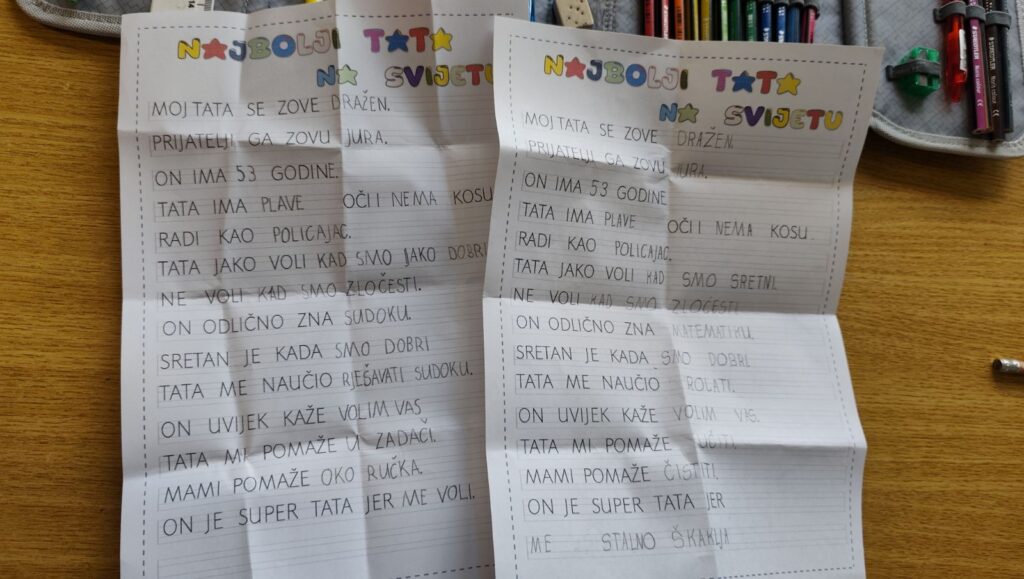 NAJBOLJI TATA
NA SVIJETU
MOJ TATA SE ZOVE DRAŽEN.
PRIJATELJI GA ZOVU JURA.
ON IMA 53 GODINE.
TATA IMA PLAVE OČI I NEMA KOSU
RADI KAO POLICAJAC.
TATA JAKO VOLI KAD SMO JAKO DOBRI
NE VOLI KAD SMO ZLOČESTI.
ON ODLIČNO ZNA SUDOKU.
SRETAN JE KADA SMO DOBRI
TATA ME NAUČIO RJEŠAVATI SUDOKU.
ON UVIJEK KAŽE VOLIM VAS
TATA MI POMAŽE U ZADAĆI.
MAMI POMAŽE OKO RUČKA.
ON JE SUPER TATA JER ME VOLI.
NAJBOLJI TATA
NA SVIJETU
MOJ TATA SE ZOVE DRAŽEN.
PRIJATELJI GA ZOVU JURA.
ON IMA 53 GODINE
TATA IMA PLAVE OČI I NEMA KOSU.
RADI KAO POLICAJAC.
TATA JAKO VOLI KAD SMO SRETNI.
NE VOLI KAD SMO ZLOČESTI
ON ODLIČNO ZNA MATEMATIKU.
SRETAN JE KADA SMO DOBRI
TATA ME NAUČIO ROLATI.
ON UVIJEK KAŽE VOLIM VAS.
TATA MI POMAŽE UČITI.
MAMI POMAŽE ČISTITI.
ON JE SUPER TATA JER
ME STALNO ŠKAKLJA